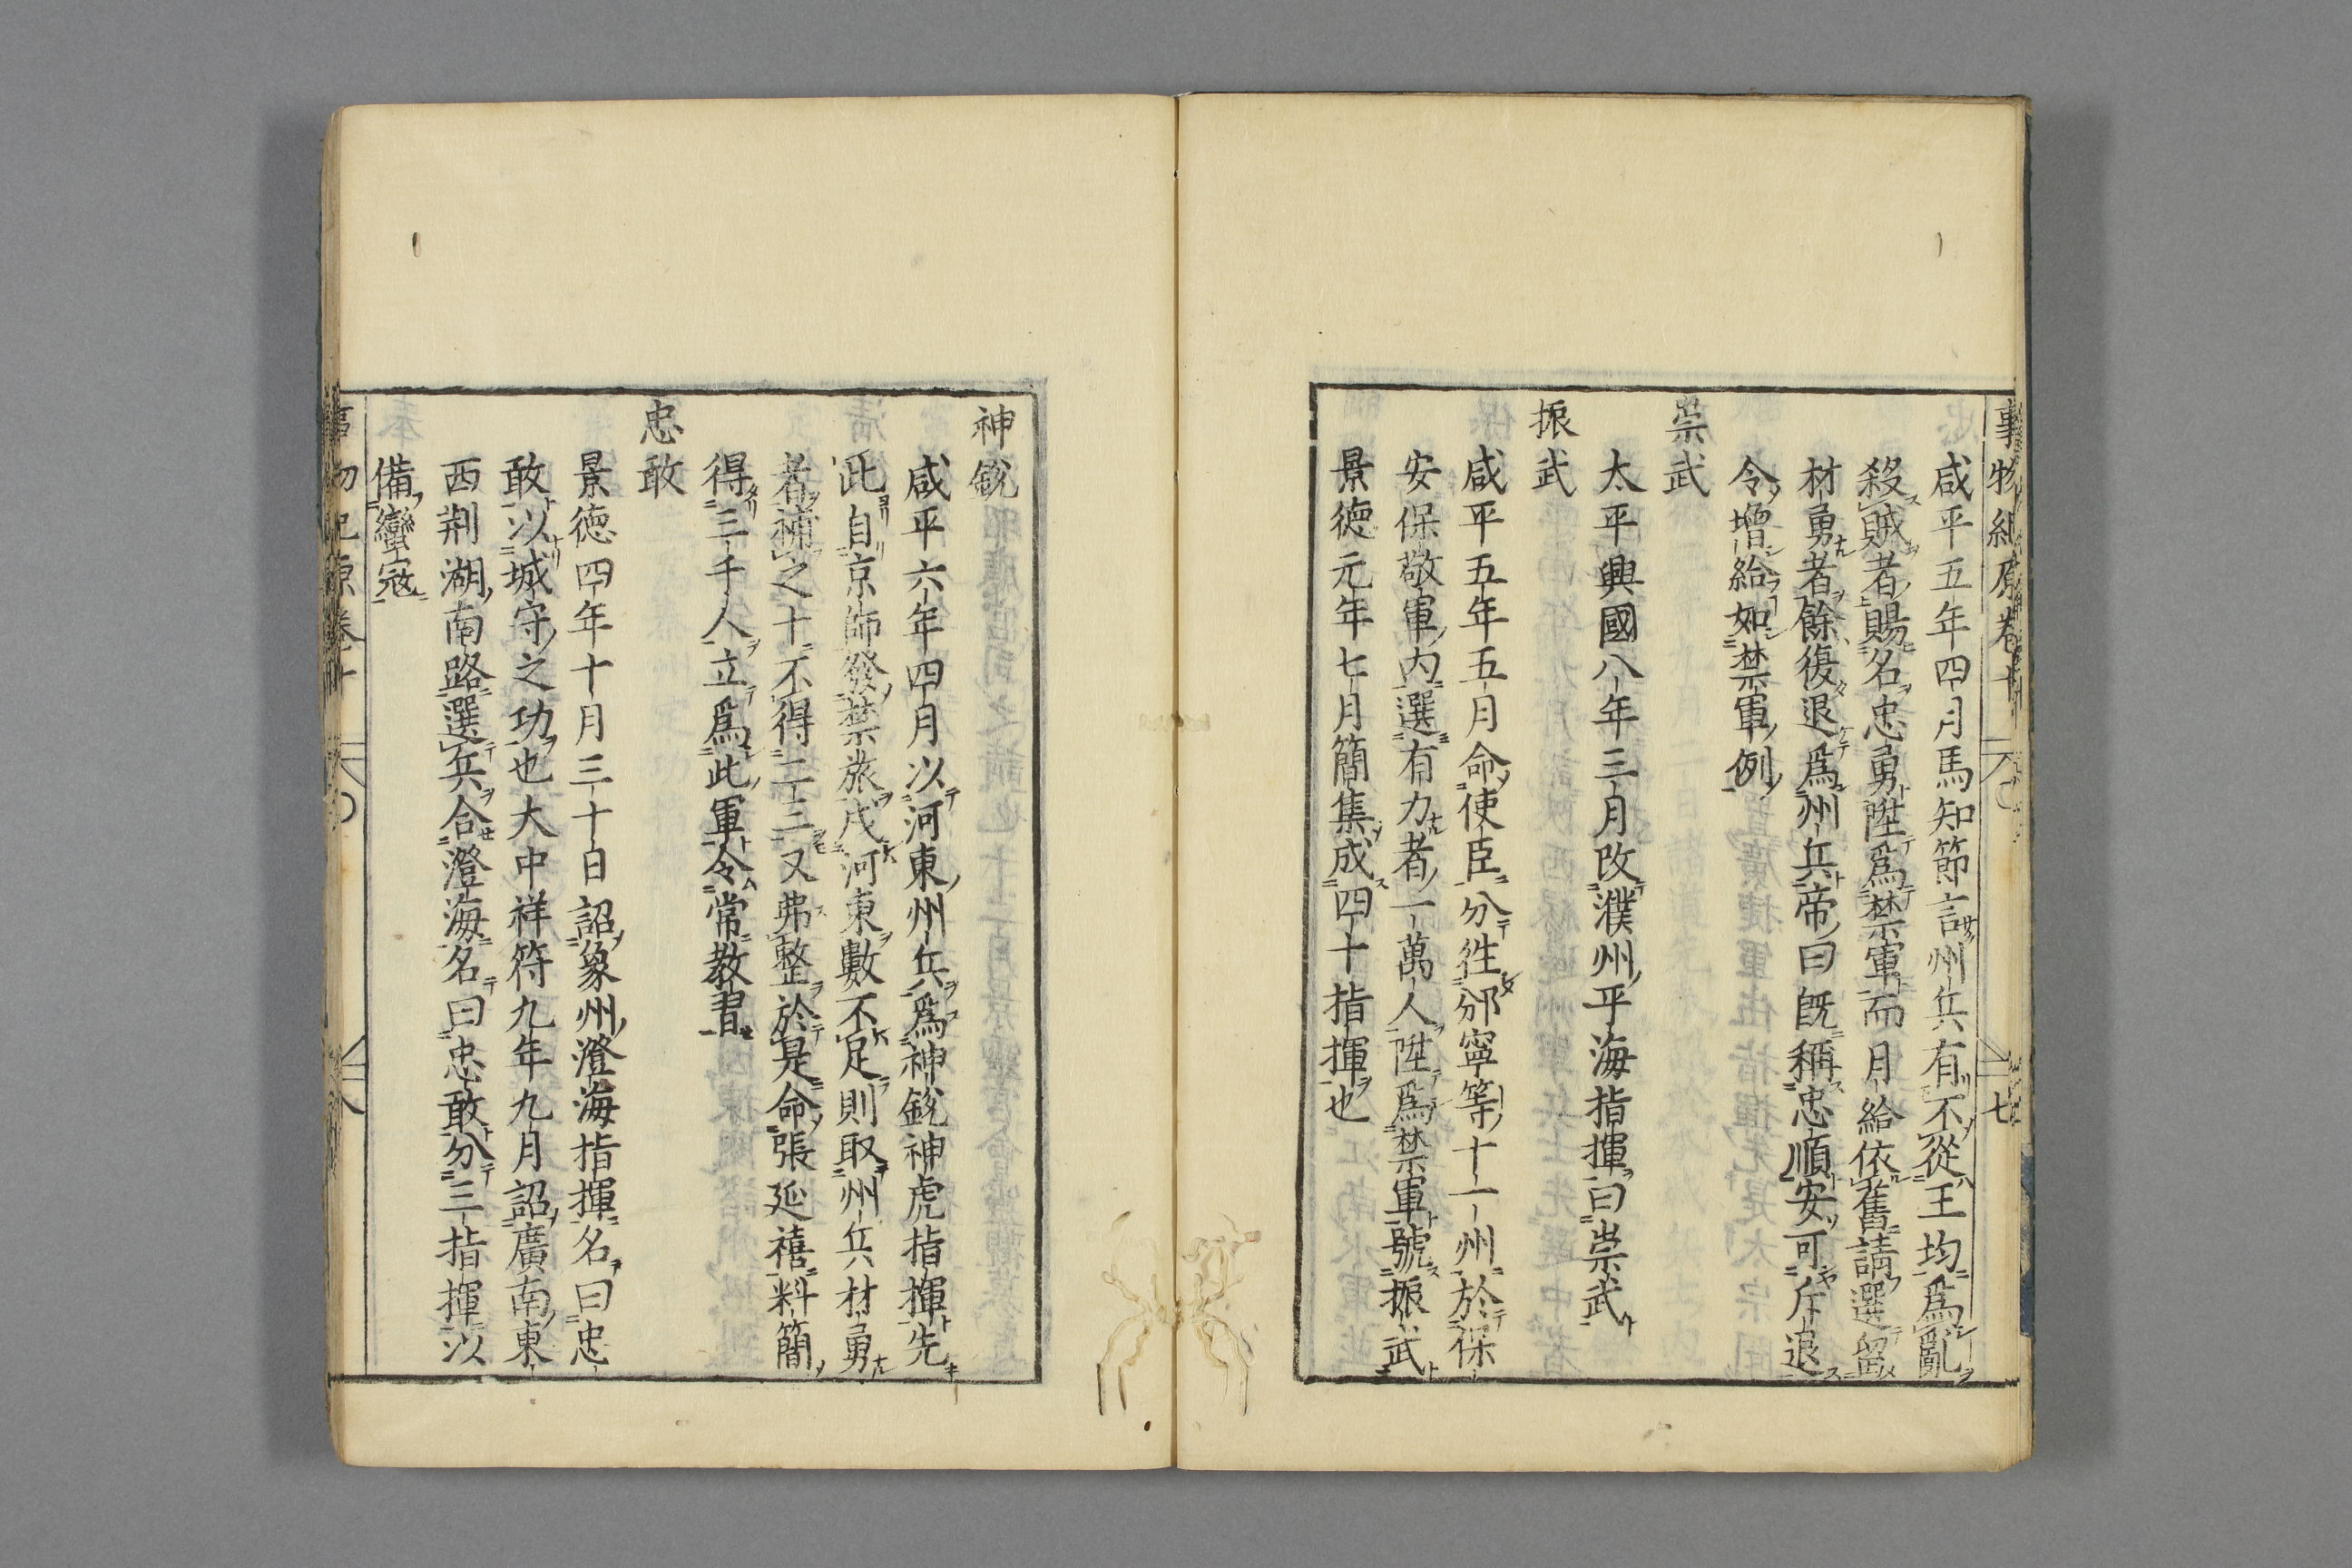 事物紀原卷十
七
咸平五年四月馬知節言州兵有不從王均爲亂
殺賊者賜名忠勇陞爲禁軍而月給依舊請選留
材勇者餘復退爲州兵帝曰既稱忠順安可斥退
令增給如禁軍例
崇武
太平興國八年三月改濮州平海指揮曰崇武
振武
咸平五年五月命使臣分徃邠寧等十一州於保
安保敬軍内選有力者一萬人陞爲禁軍號振武
景德元年七月簡集成四十指揮也
神銳
咸平六年四月以河東州兵爲神銳神虎指揮先
此自京師發禁旅戍河東數不足則取州兵材勇
者補之十不得二三又弗整於是命張延禧料簡
得三千人立爲此軍令常教習
忠敢
景德四年十月三十日詔象州澄海指揮名曰忠
敢以城守之功也大中祥符九年九月詔廣南東
西荆湖南路選兵合澄海名曰忠敢分三指揮以
備蠻寇